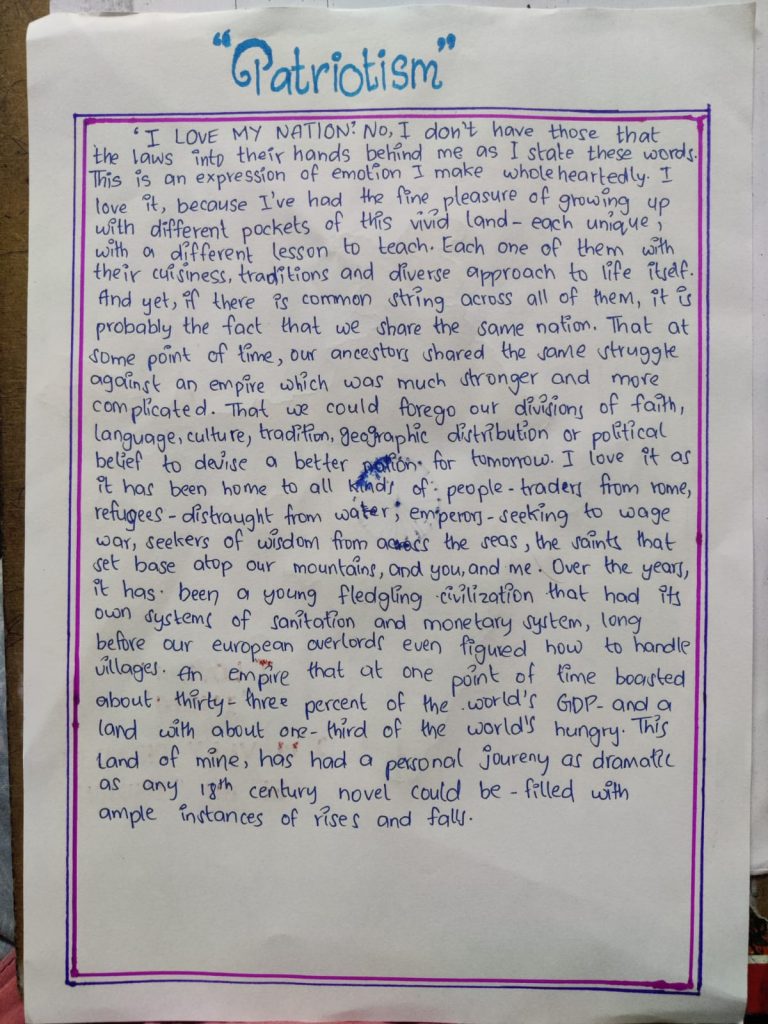 “Patriotism”
‘I LOVE MY NATION’. No, I don't have those that
the laws into their hands behind me as I state these words.
This is an expression of emotion I make wholeheartedly. I
love it, because I've had the fine pleasure of growing up
with different pockets of this vivid land - each unique,
with a different lesson to teach. Each one of them with
their cuisiness, traditions and diverse approach to life itself.
And yet, if there is common string across all of them, it is
probably the fact that we share the same nation. That at
some point of time, our ancestors shared the same struggle
against an empire which was much stronger and more
complicated. That we could forego our divisions of faith,
language, culture, tradition, geographic distribution or political
belief to devise a better nation for tomorrow. I love it as
it has been home to all kinds of people - traders from rome,
refugees - distraught from water, emperors - seeking to wage
war, seekers of wisdom from across the seas, the saints that
set base atop our mountains, and you, and me. Over the years,
it has been a young fledgling civilization that had its
own systems of sanitation and monetary system, long
before our european overlords even figured how to handle
villages. An empire that at one point of time boasted
about thirty-three percent of the world's GDP - and a
land with about one-third of the world's hungry. This
land of mine, has had a personal joureny as dramatic
as any 18th century novel could be - filled with
ample instances of rises and falls.